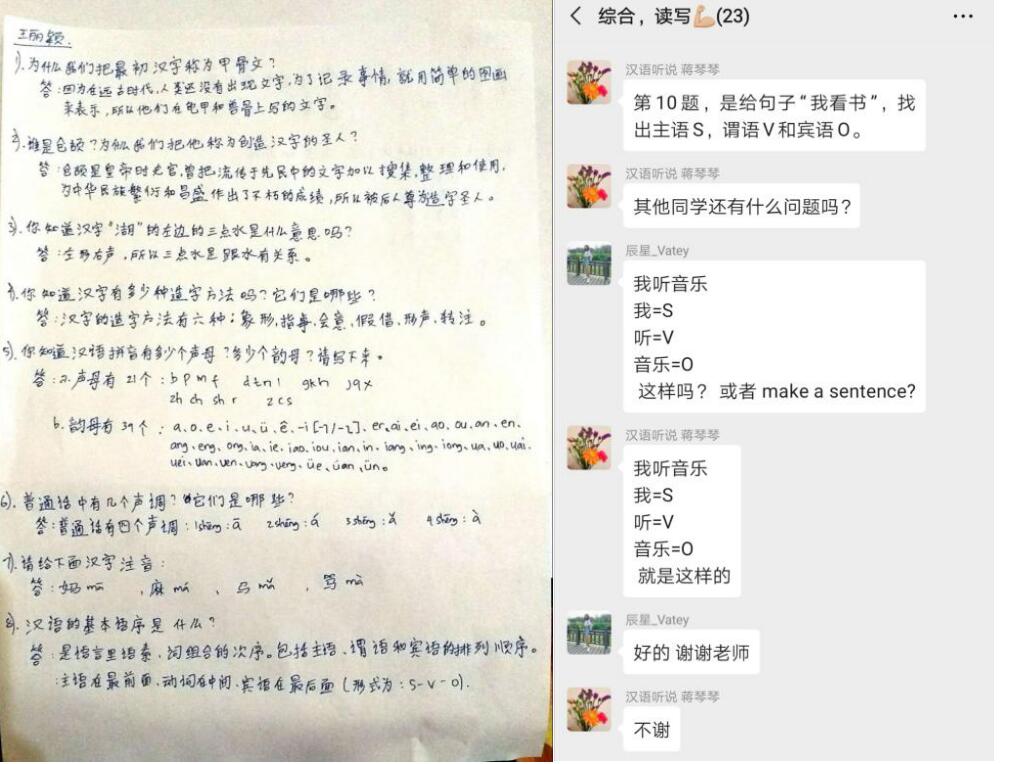 王丽颖.
1). 为什么我们把最初汉字称为甲骨文？
答：因为在远古时代，人类还没有出现文字，为了记录事情，就用简单的图画
来表示，所以他们在龟甲和兽骨上写的文字。
2). 谁是仓颉？为什么我们把他称为创造汉字的圣人？
答：仓颉是皇帝时史官，曾把流传于先民中的文字加以搜集，整理和使用，
为中华民族繁衍和昌盛作出了不朽的成绩，所以被后人尊为造字圣人。
3). 你知道汉字“湖”的左边的三点水是什么意思吗？
答：左形右声，所以三点水是跟水有关系。
4). 你知道汉字有多少种造字方法吗？它们是哪些？
答：汉字的造字方法有六种：象形，指事，会意，假借，形声，转注。
5). 你知道汉语拼音有多少个声母？多少个韵母？请写下来。
答：a. 声母有 21个：b p m f d t n l g k h j q x
zh ch sh r z c s
b. 韵母有 39个：a、o、e、i、u、ü、ê、-i [-ɿ/-ʅ]、er、ai、ei、ao、ou、an、en、
ang、eng、ong、ia、ie、iao、iou、ian、in、iang、ing、iong、ua、uo、uai、
uei、uan、uen、uang、ueng、üe、üan、ün。
6). 普通话中有几个声调？它们是哪些？
答：普通话有四个声调：1shēng：ā 2shēng：á 3shēng：ǎ 4shēng：à
7). 请给下面汉字注音：
答：妈 mā ，麻 má ，马 mǎ ，骂 mà
8). 汉语的基本语序是什么？
答：是语言里语素、词组合的次序。包括主语、谓语和宾语的排列顺序。
：主语在最前面、动词在中间、宾语在最后面（形式为：S-V-O).
综合，读写💪🏼(23)
汉语听说 蒋琴琴
第10题，是给句子“我看书”，找
出主语S，谓语V和宾语O。
汉语听说 蒋琴琴
其他同学还有什么问题吗？
辰星_Vatey
我听音乐
我=S
听=V
音乐=O
这样吗？ 或者 make a sentence?
汉语听说 蒋琴琴
我听音乐
我=S
听=V
音乐=O
就是这样的
辰星_Vatey
好的 谢谢老师
汉语听说 蒋琴琴
不谢